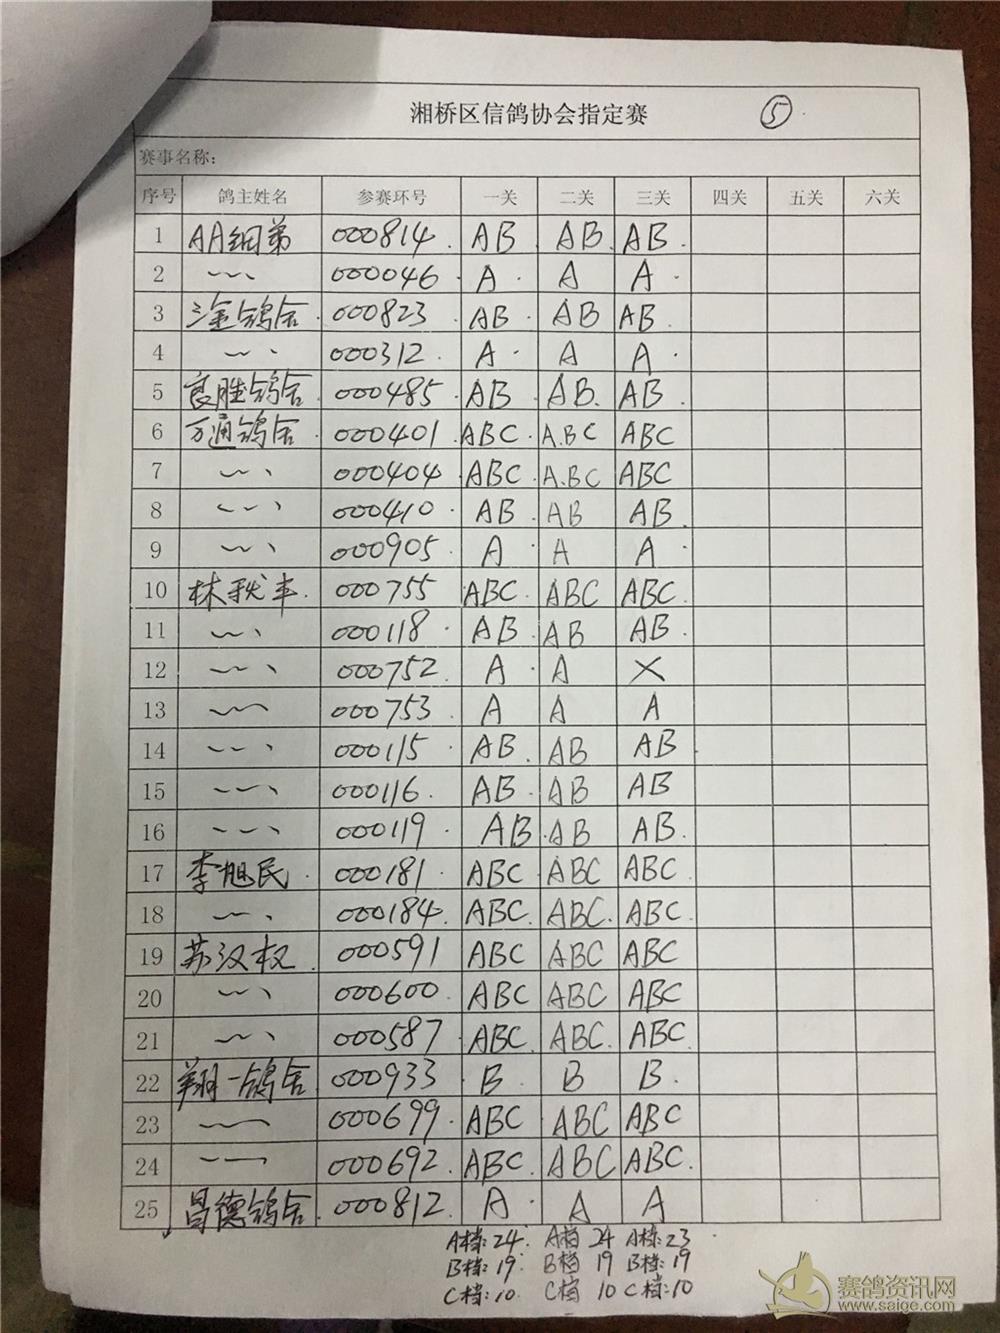 湘桥区信鸽协会指定赛 ⑤
赛事名称：
序号 鸽主姓名 参赛环号 一关 二关 三关 四关 五关 六关
1 AA细弟 000814. AB AB. AB.
2 〃 000046. A. A A.
3 淦鸽舍. 000823 AB. AB AB.
4 〃 000312. A. A A.
5 良胜鸽舍 000485 AB AB. AB
6 万通鸽舍. 000401 ABC. A.BC ABC
7 〃 000404 ABC. A.BC ABC
8 〃 000410 AB. AB AB.
9 〃 000905 A. A A.
10 林秋丰. 000755 ABC. ABC ABC.
11 〃 000118 AB. AB AB.
12 〃 000752. A. A ×
13 〃 000753 A A A
14 〃 000115. AB. AB AB.
15 〃 000116. AB. AB AB
16 〃 000119. AB. AB AB.
17 李旭民. 000181 ABC ABC ABC.
18 〃 000184. ABC. ABC. ABC.
19 苏汉权. 000591 ABC ABC ABC
20 〃 000600. ABC ABC ABC
21 〃 000587 ABC. ABC. ABC.
22 翔一鸽舍. 000933 B. B B.
23 〃 000699. ABC ABC ABC
24 〃 000692. ABC. ABC ABC.
25 昌德鸽舍. 000812. A. A A
A档:24. A档 24 A档:23
B档:19. B档 19 B档:19
C档:10. C档 10 C档:10
赛鸽资讯网
www.saige.com